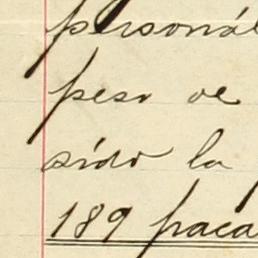 personál
peso de
sido la
189 paca